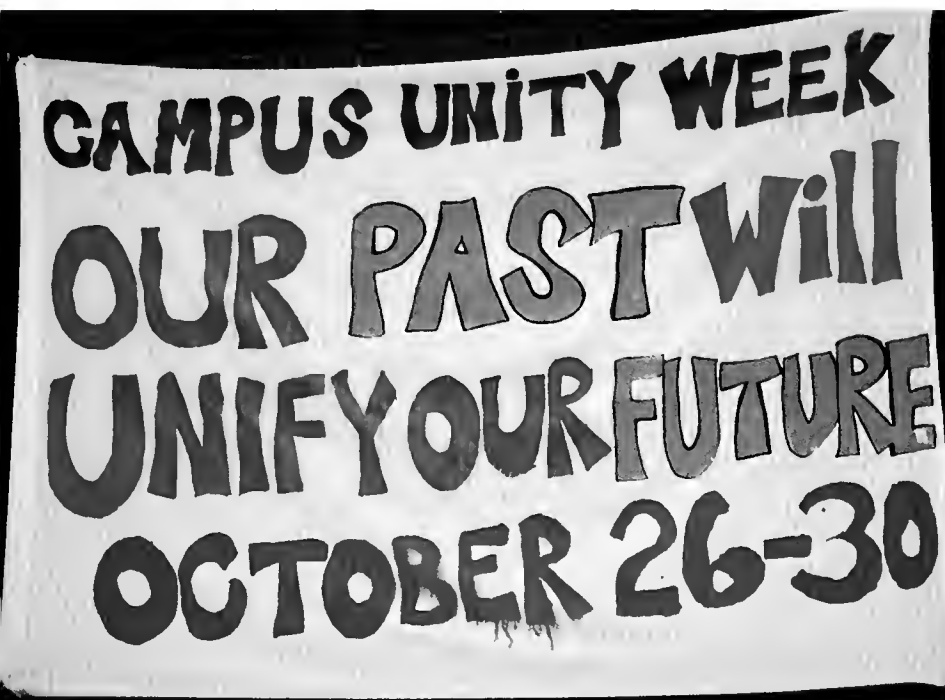 CAMPUS UNiTY WEEK
OUR PAST Will
UNIFY OUR FUTURE
OCTOBER 26-30